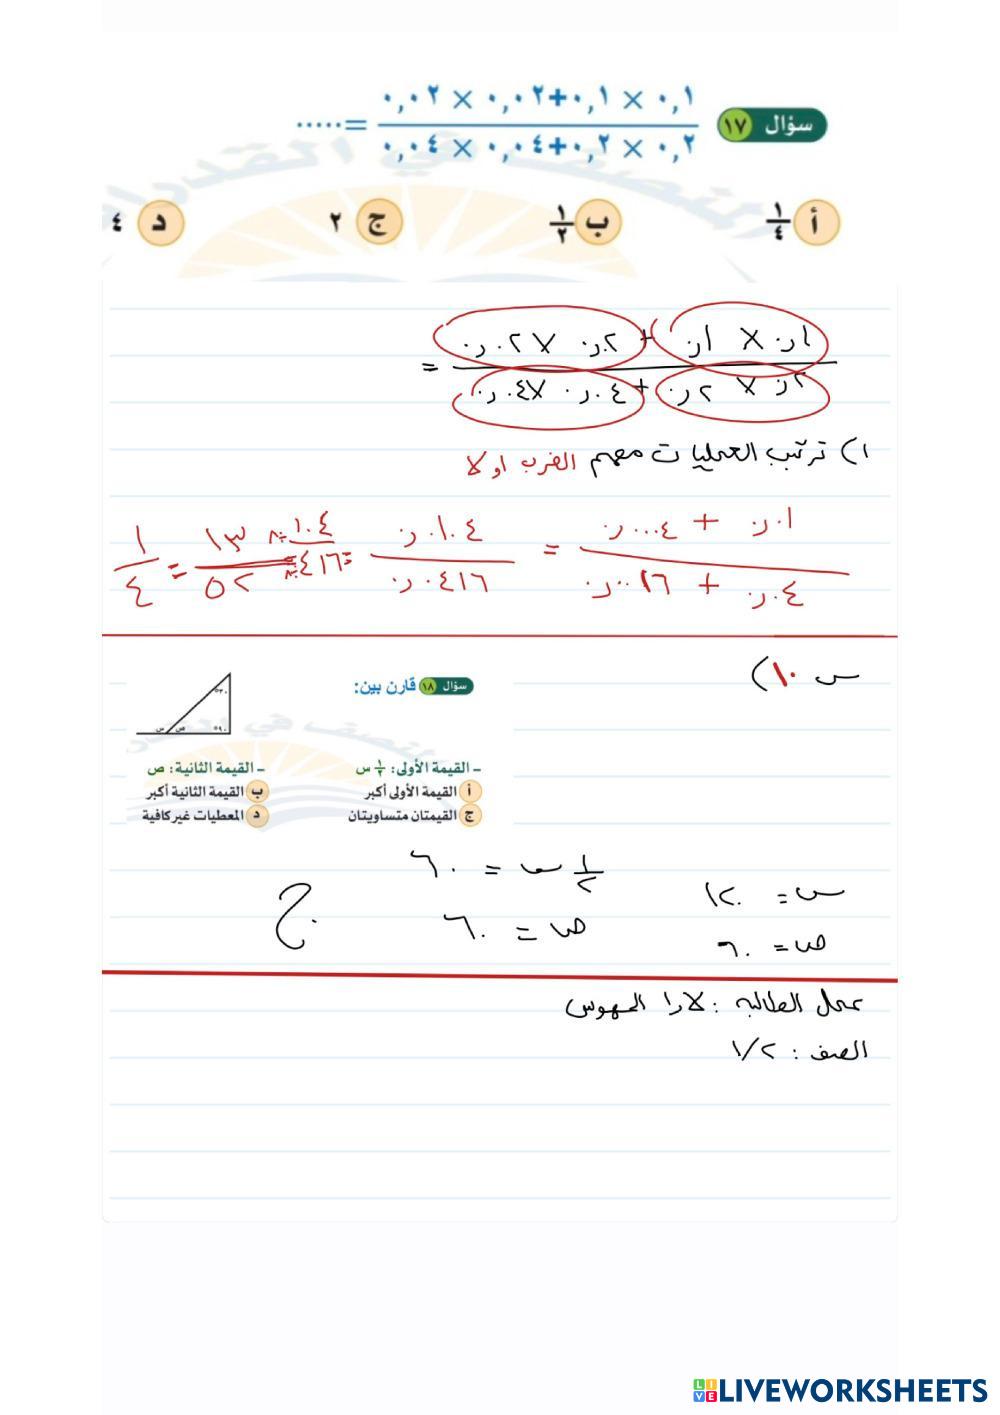 سؤال ١٧ ٠,١ × ٠,١+٠,٠٢ × ٠,٠٢
٠,٢ × ٠,٢+٠,٠٤ × ٠,٠٤
=.....
أ ١/٤ ب ١/٢ ج ٢ د ٤
٠,١ × ٠,١ + ٠,٠٢ × ٠,٠٢
٠,٢ × ٠,٢ + ٠,٠٤ × ٠,٠٤ =
١) ترتب العمليات مهم الضرب اولا
٠,٠١ + ٠,٠٠٠٤ = ٠,٠١٠٤ = ١٠٤ ÷٨ ١٣ = ١
٠,٠٤ + ٠,٠٠١٦ ٠,٠٤١٦ ٤١٦ ÷٨ ٥٢ ٤
س ١٠)
سؤال ١٨ قارن بين:
٣٠° ٩٠° ص س
- القيمة الأولى: ١/٢ س - القيمة الثانية: ص
أ القيمة الأولى أكبر ب القيمة الثانية أكبر
ج القيمتان متساويتان د المعطيات غير كافية
س = ١٢٠ ١/٢ س = ٦٠
ص = ٦٠ ص = ٦٠ ج
عمل الطالبه : لارا المهوس
الصف : ١/٢
LIVEWORKSHEETS